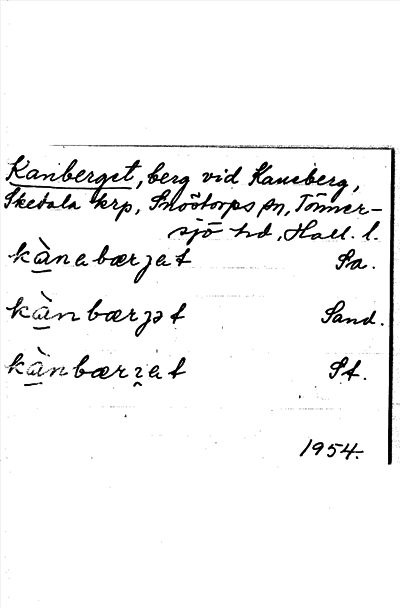 Kanberget, berg vid Kaneberg,
Skedala krp, Snöstorps sn, Tönner-
sjö hd, Hall. l.
kànabærjat Sa.
kànbærjət Sand.
kànbærjat St.
1954.